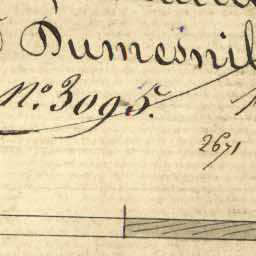 Dumesnil
No. 3095.
2671